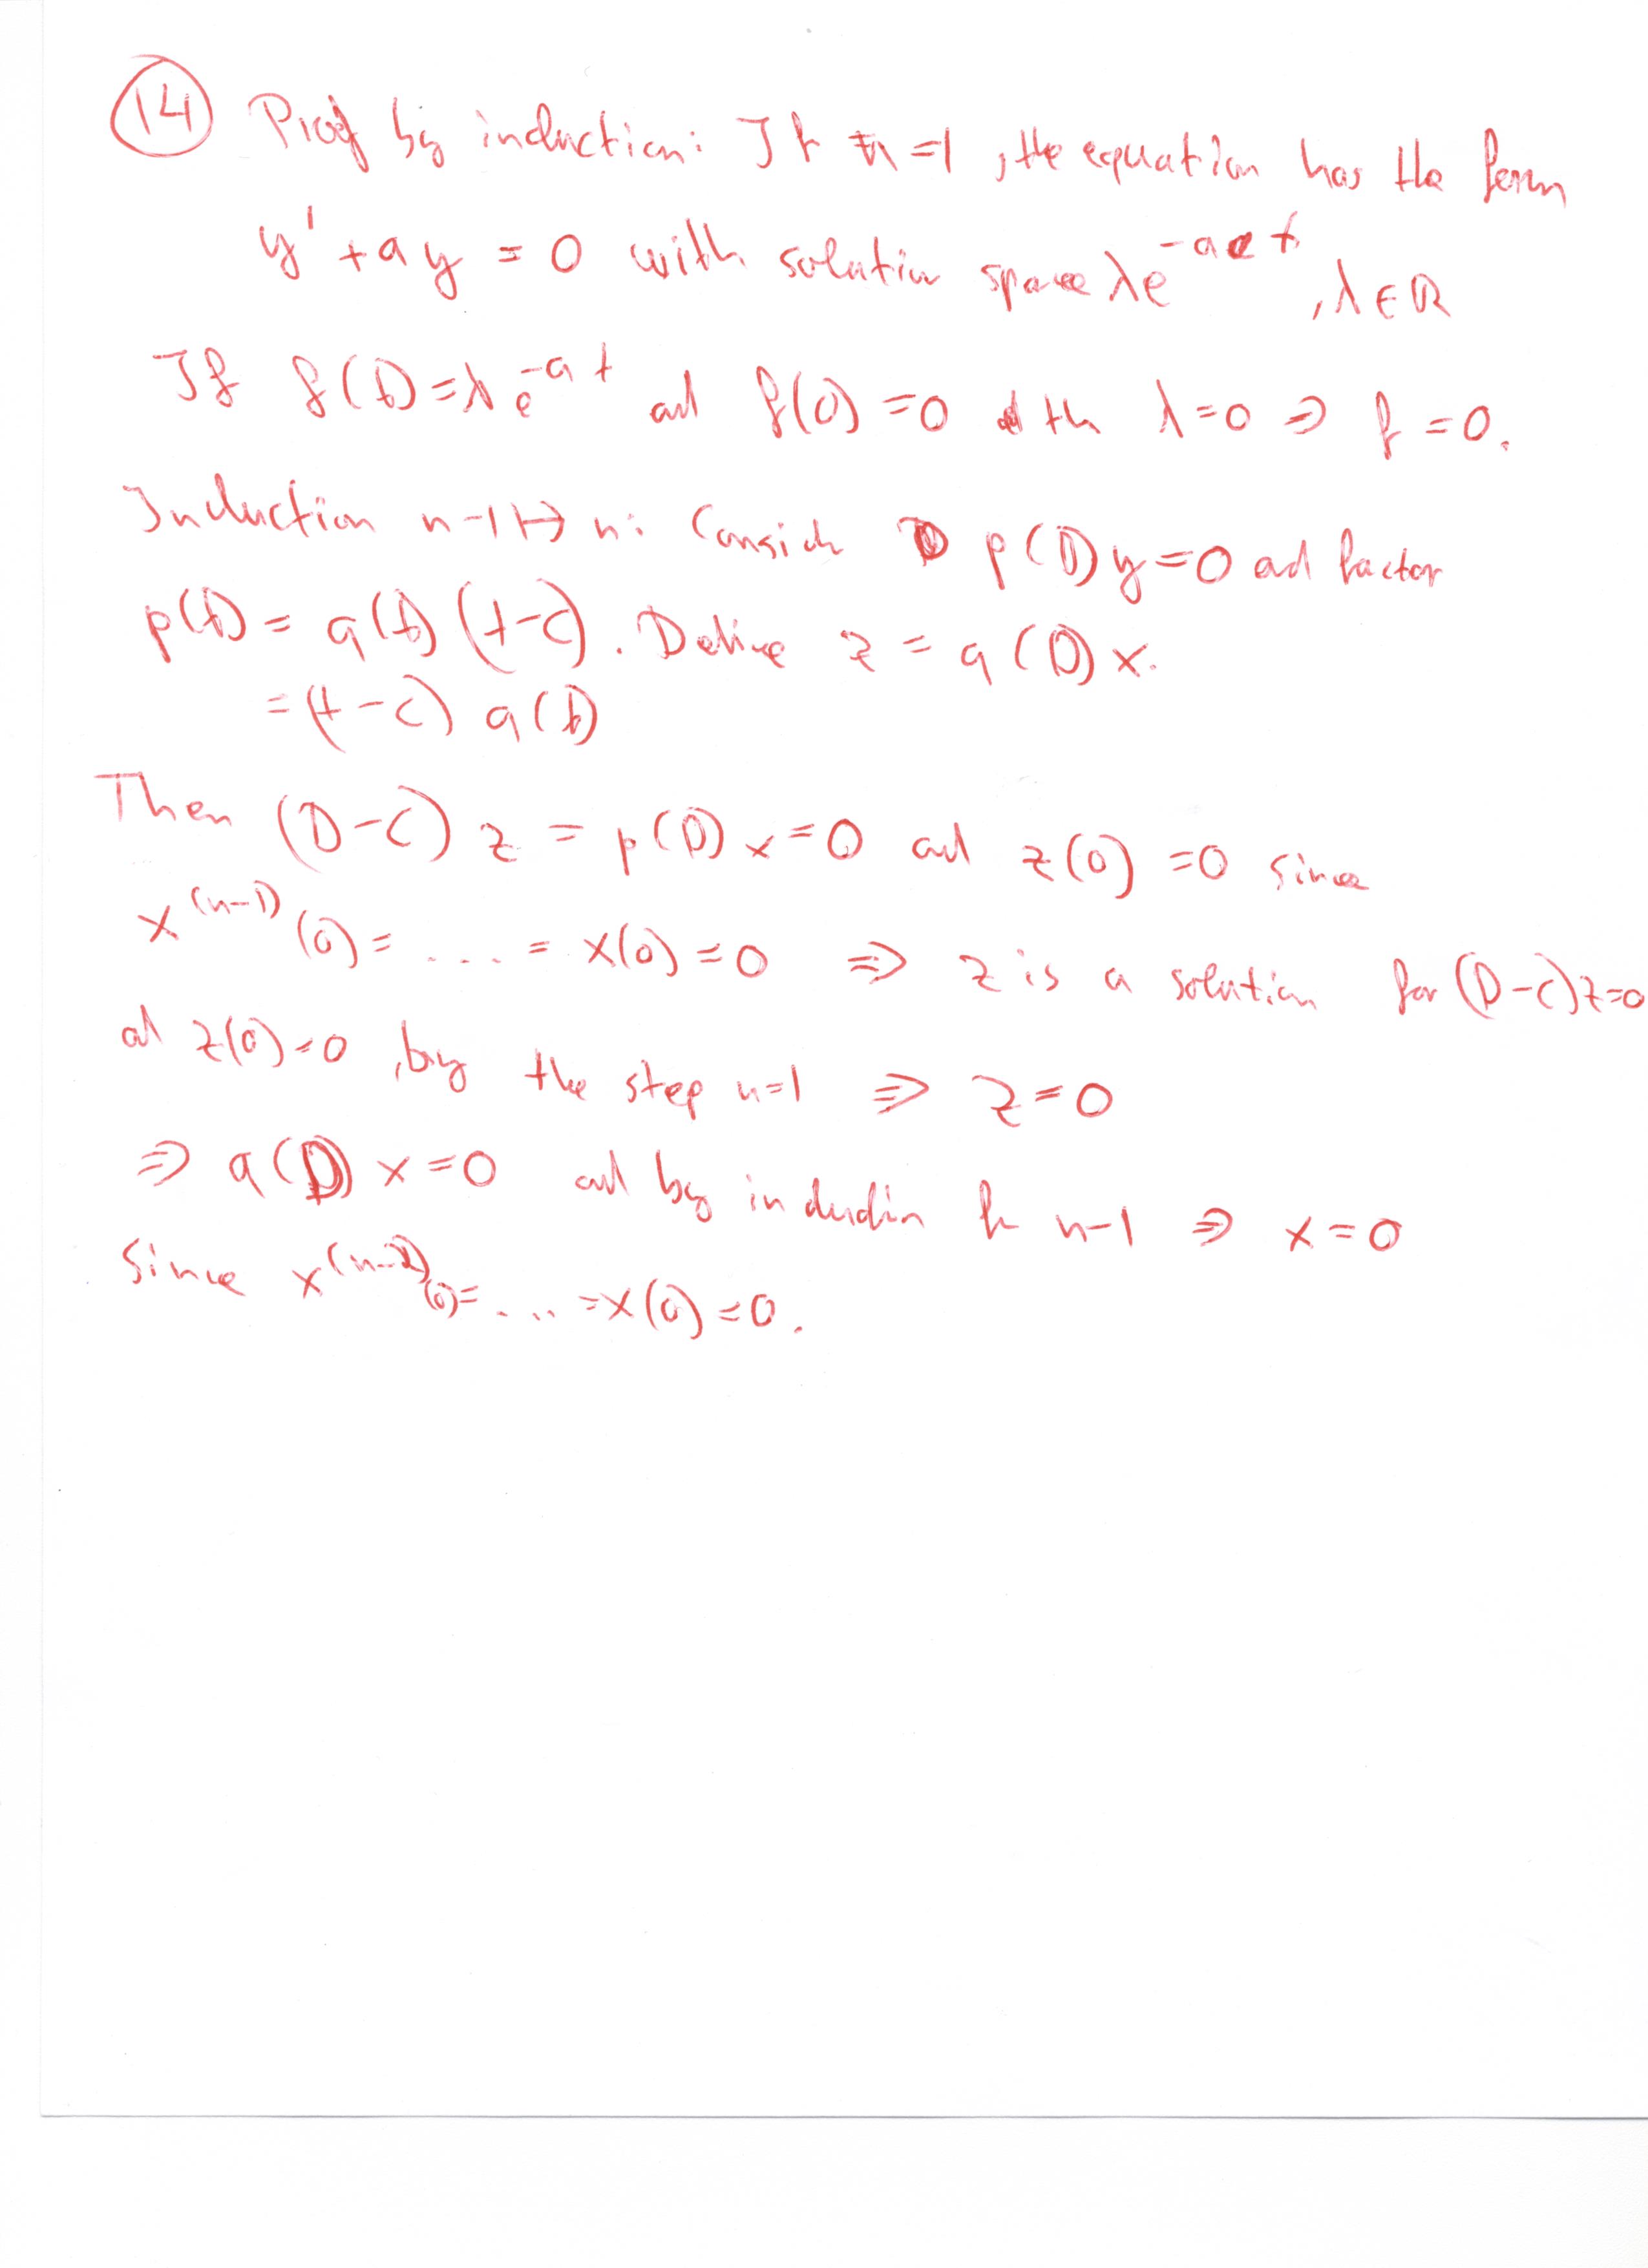 14 Proof by induction: If n=1, the equation has the form
y' + ay = 0 with solution space λe^{-at}, λ∈ℝ
If f(t)=λe^{-at} ad f(0)=0 th λ=0 ⇒ f=0.
Induction n-1↦n: Consider p(D)y=0 ad factor
p(t) = q(t)(t-c). Define z = q(D)x.
= (t-c) q(t)
Then (D-c) z = p(D)x=0 ad z(0)=0 since
x^{(n-1)}(0)= .... = x(0)=0 ⇒ z is a solution for (D-c)z=0
ad z(0)=0, by the step n=1 ⇒ z=0
⇒ q(D)x=0 ad by induction for n-1 ⇒ x=0
since x^{(n-2)}(0)= .... =x(0)=0.